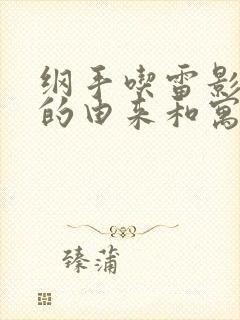 纲手喫雷影
的由来和寓
臻蒲